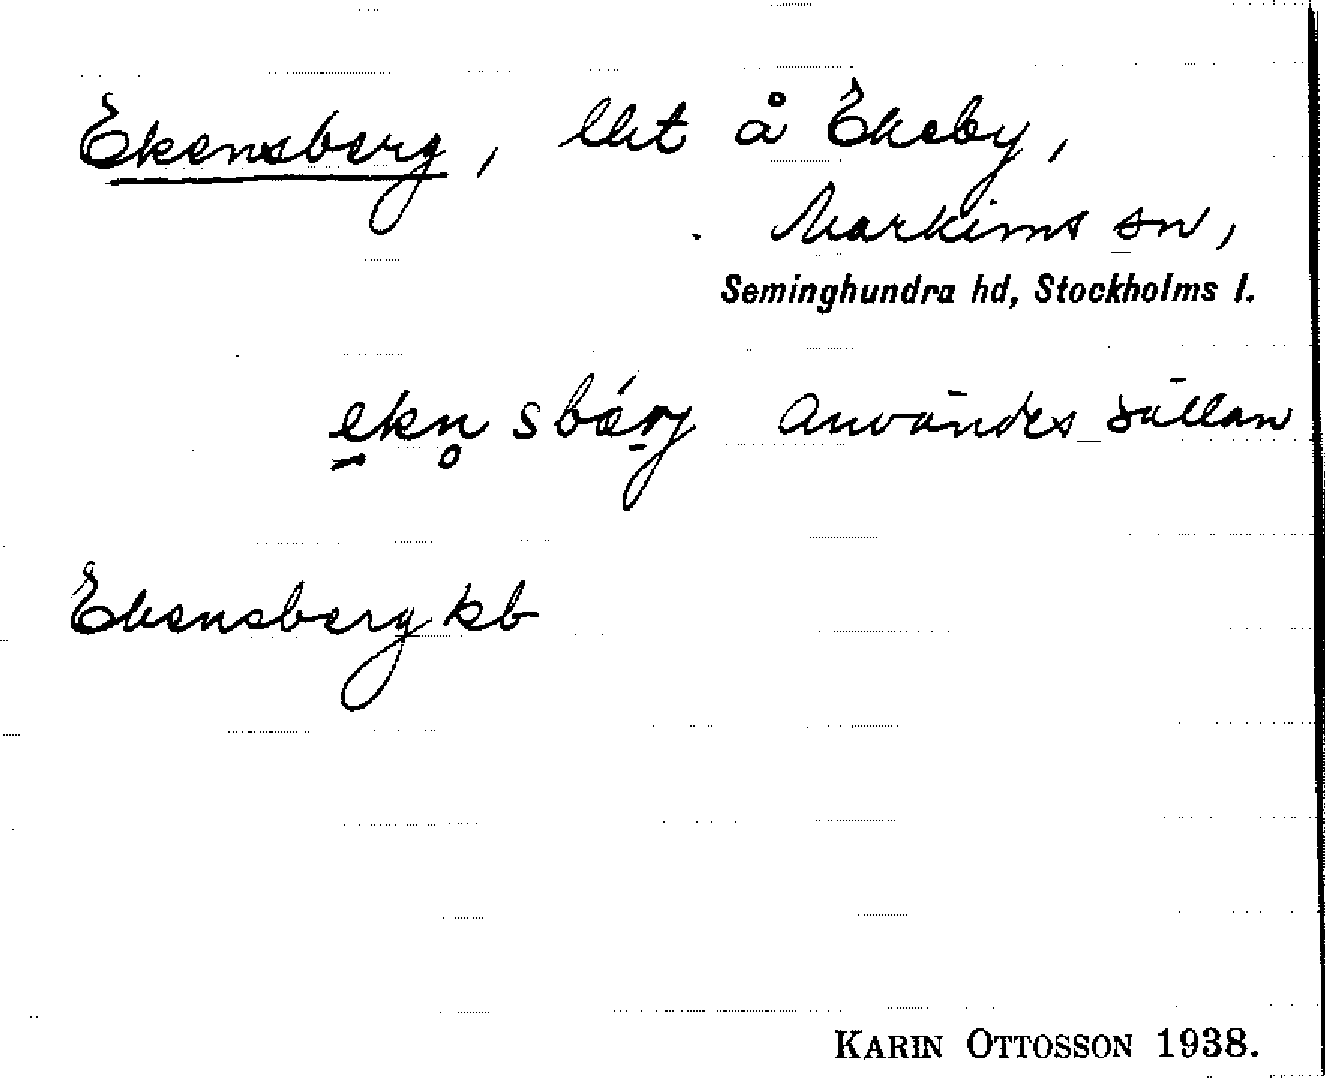 Ekensberg, lht å Ekeby,
Markims sn,
Seminghundra hd, Stockholms l.
ekn̥sbárj Användes sällan
Ekensberg kb
KARIN OTTOSSON 1938.